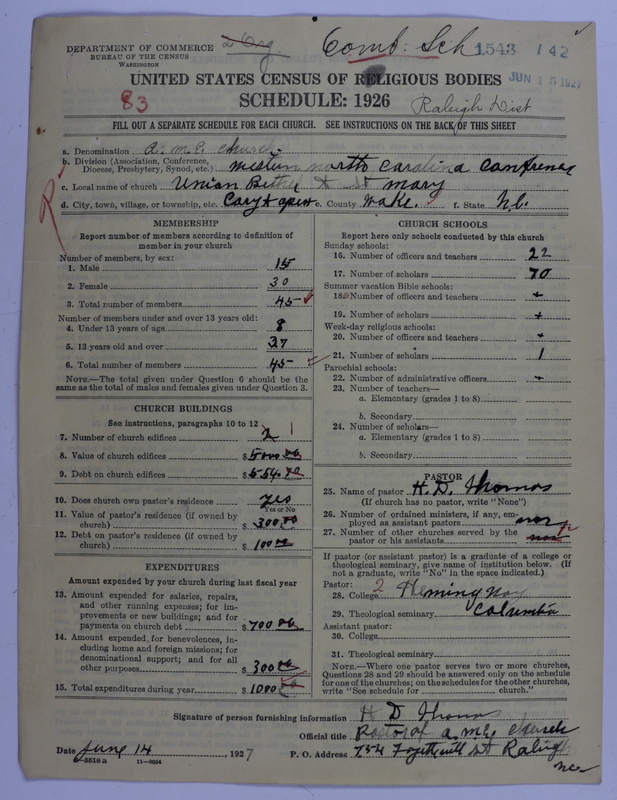 2 Org. Comb. Sch 1543 142
DEPARTMENT OF COMMERCE
BUREAU OF THE CENSUS
WASHINGTON
JUN 16 1927
UNITED STATES CENSUS OF RELIGIOUS BODIES
83
SCHEDULE: 1926
Raleigh Dist
FILL OUT A SEPARATE SCHEDULE FOR EACH CHURCH. SEE INSTRUCTIONS ON THE BACK OF THIS SHEET
a. Denomination A. M. E. Church
b. Division (Association, Conference, Diocese, Presbytery, Synod, etc.) Western North Carolina Conference
c. Local name of church Union Bethel & St Mary
d. City, town, village, or township, etc. Cary & apex e. County Wake. f. State N.C.
MEMBERSHIP
Report number of members according to definition of
member in your church
Number of members, by sex:
1. Male 15
2. Female 30
3. Total number of members 45
Number of members under and over 13 years old:
4. Under 13 years of age 8
5. 13 years old and over 37
6. Total number of members 45
NOTE.—The total given under Question 6 should be
same as the total of males and females given under Question 3.
CHURCH BUILDINGS
See instructions, paragraphs 10 to 12
7. Number of church edifices 2 1
8. Value of church edifices $5000 00
9. Debt on church edifices $554.00
10. Does church own pastor's residence yes
Yes or No
11. Value of pastor's residence (if owned by
church) $300 00
12. Debt on pastor's residence (if owned by
church) $100 00
EXPENDITURES
Amount expended by your church during last fiscal year
13. Amount expended for salaries, repairs,
and other running expenses; for im-
provements or new buildings; and for
payments on church debt $700 00
14. Amount expended for benevolences, in-
cluding home and foreign missions; for
denominational support; and for all
other purposes $300 00
15. Total expenditures during year $1000 00
CHURCH SCHOOLS
Report here only schools conducted by this church
Sunday schools:
16. Number of officers and teachers 22
17. Number of scholars 70
Summer vacation Bible schools:
18. Number of officers and teachers +
19. Number of scholars +
Week-day religious schools:
20. Number of officers and teachers +
21. Number of scholars 1
Parochial schools:
22. Number of administrative officers +
23. Number of teachers—
a. Elementary (grades 1 to 8)
b. Secondary
24. Number of scholars—
a. Elementary (grades 1 to 8)
b. Secondary
PASTOR
25. Name of pastor H. D. Thomas
(If church has no pastor, write "None")
26. Number of ordained ministers, if any, em-
ployed as assistant pastors
27. Number of other churches served by the
pastor or his assistants
If pastor (or assistant pastor) is a graduate of a college or
theological seminary, give name of institution below. (If
not a graduate, write "No" in the space indicated.)
Pastor:
28. College 2 Fleming
29. Theological seminary Columbia
Assistant pastor:
30. College
31. Theological seminary
NOTE.—Where one pastor serves two or more churches,
Questions 28 and 29 should be answered only on the schedule
for one of the churches; on the schedules for the other churches,
write "See schedule for church."
Signature of person furnishing information H D Thomas
Official title Pastor of a.m.e. church
Date June 14, 1927 P. O. Address 754 Fayetteville St Raleigh
8-5518 a 11-9054 N.C.